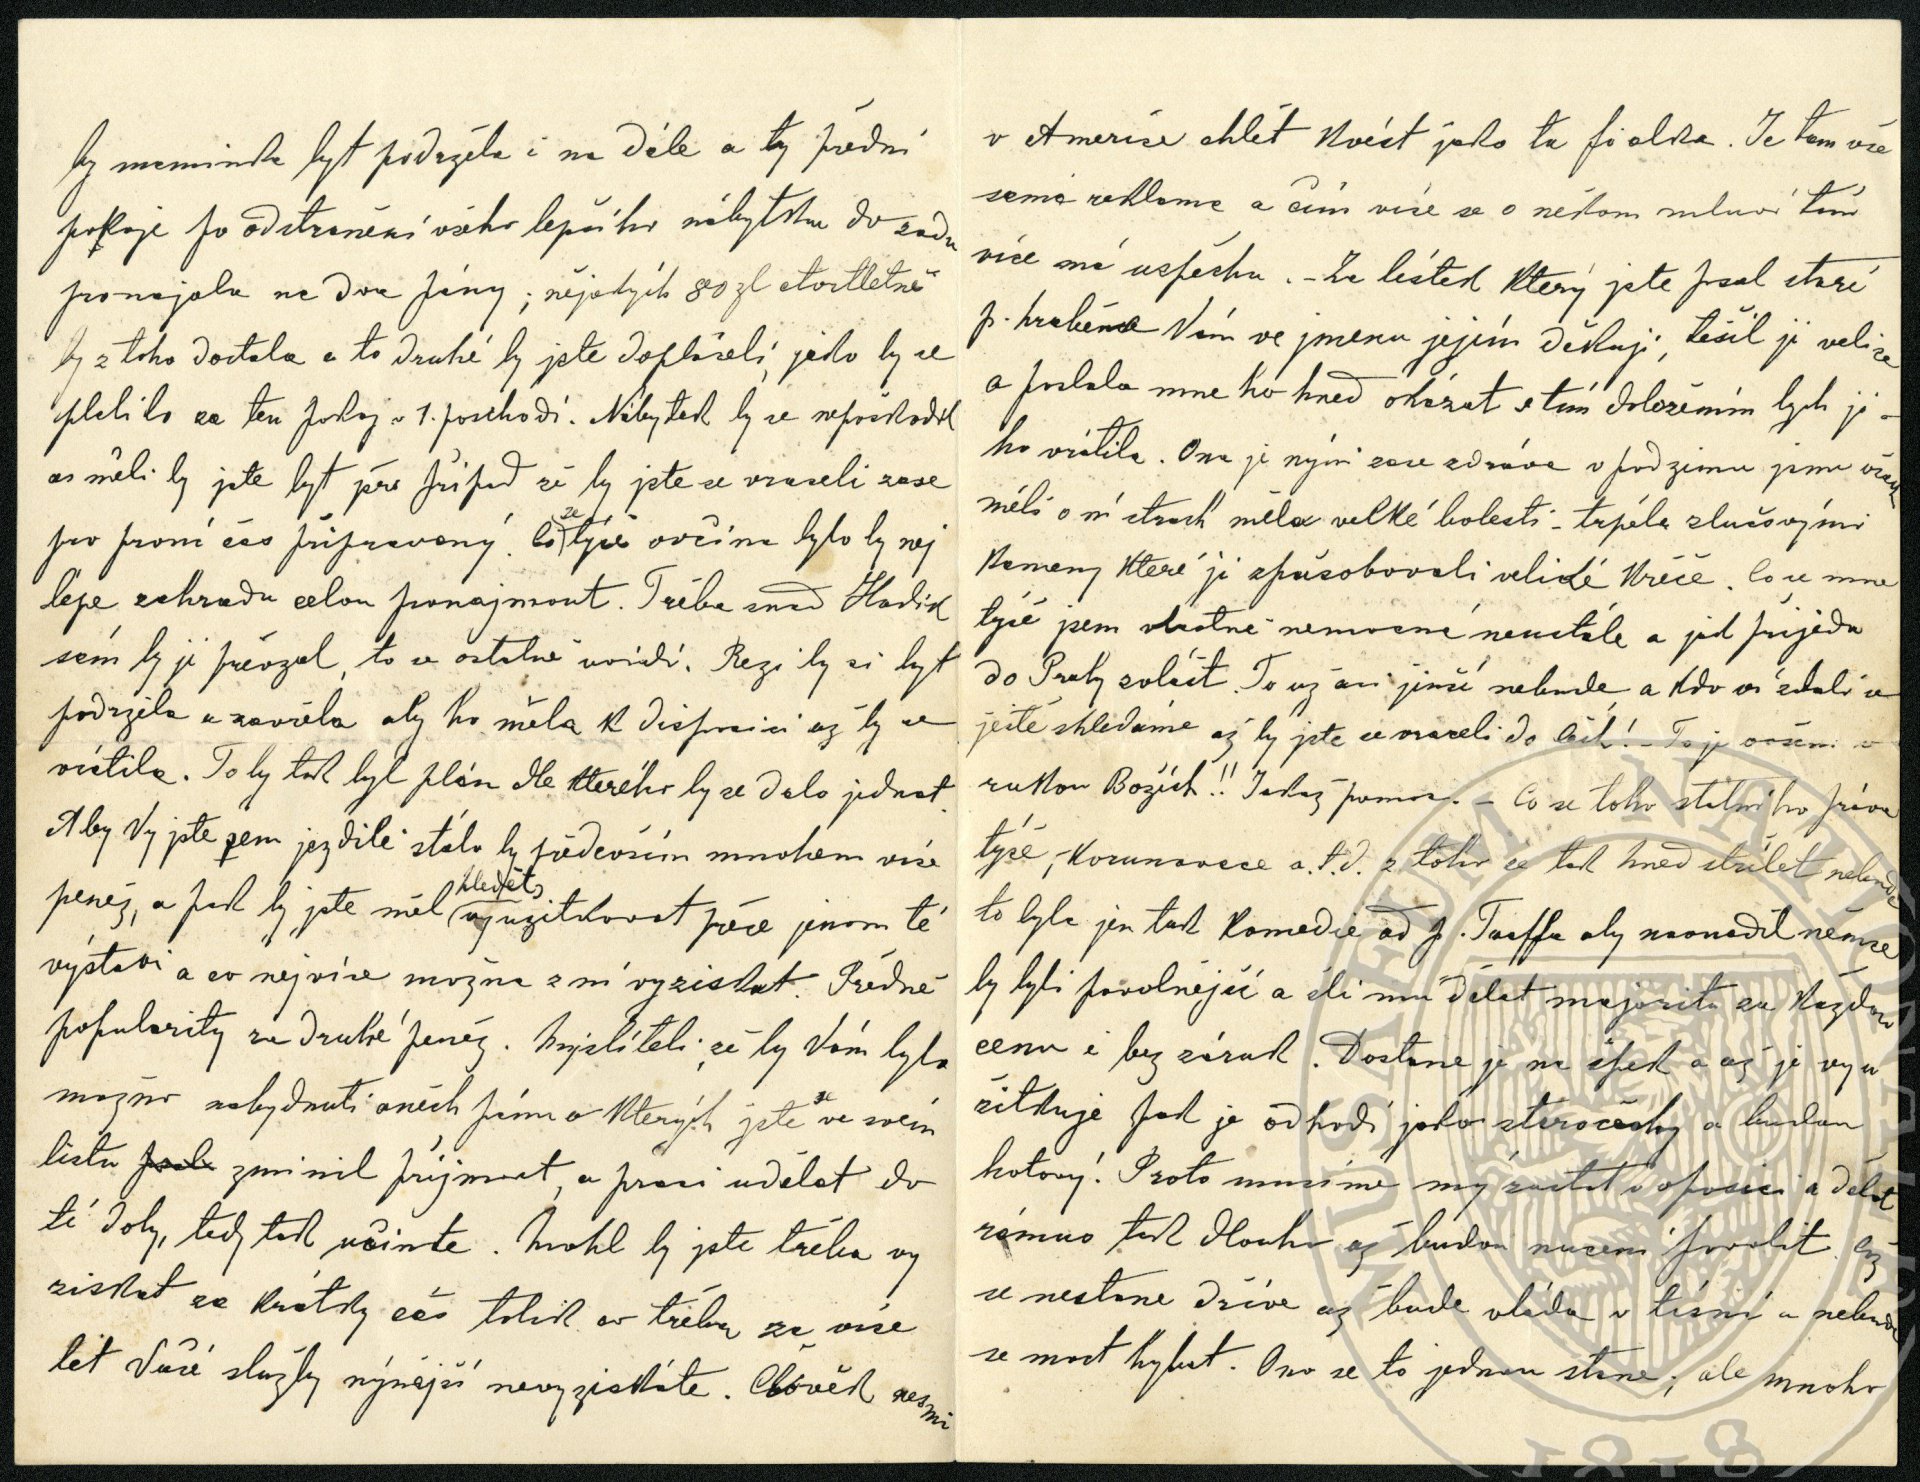 by maminka byt podržela i na dále a ty přední
pokoje po odstranění všeho lepšího nábytku do zadu
pronajala na dva pány; nějakých 80 zl čtvrtletně
by z toho dostala a to druhé by jste dopláceli, jako by se
platilo za ten pokoj v 1. poschodí. Nábytek by se nepoškodil
as měli by jste byt pře připad že by jste se vraceli zase
pro první čas připravený. Co se týče ovčína bylo by nej
lépe zahradu celou pronajmout. Třeba snad Hadik
sám by ji převzal, to se ostatně uvidí. Rezi by si byt
podržela a zavřela aby ho měla k disposici až by se
vrátila. To by tak byl plán dle kterého by se dalo jednat.
Aby Vy jste sem jezdili stálo by především mnohem více
peněz, a pak by jste měl hleděti vyuzitkovat přece jenom té
výstavi a co nejvíce možna z ní vyziskat. Předně
popularity za druhé peněz. Myslíteli, že by Vám bylo
možno nabydnuti oněch pánu o kterých jste se ve svém
listu psal zminil přijmout, a praci udělat do
té doby, tedy tak učinte. Mohl by jste třeba vy
ziskat za krátky čas tolik co třeba za více
let Vaší služby nýnější nevyziskáte. Člověk nesmí
v Americe chlět kvést jako ta fialka. Je tam vše
samá reklama a čím více se o někom mluví tím
více má uspěchu. - Za lístek který jste psal staré
p. hraběnce Vám ve jmenu jejím děkuji, těšil ji velice
a poslala mne ho hned okázat s tím doložením bych ji
ho vrátila. Ona je nýni zase zdráva v podzimu jsme však
měli o ní strach měla velké bolesti - trpěla zlučovými
kameny které ji spůsobovali veliké křeče. Co se mne
týče jsem vlastně nemocná neustále a jak přijedu
do Prahy zvlášt. To už asi jinší nebude a kdo ví zdali se
ještě shledáme až by jste se vraceli do Čech! - To je ovšem v
rukou Božích!! Jakaž pomoc. - Co se toho státního práva
týče, korunovace a.t.d. z toho se tak hned střílet nebude
to byla jen tak komedie od p. Taaffa aby navnadil němce
by byli povolnější a šli mu dělat majoritu za každou
cenu i bez záruk. Dostane je na špek a až je vyu
žitkuje pak je odhodí jako staročechy a budou
hotový. Proto musíme mý zustat v oposici a dělat
rámus tak dlouho až budou nuceni povolit. Což
se nestane dříve až bude vláda v tísni a nebude
se moct hybat. Ono se to jednou stane, ale mnoho
MUSAEUM NATIONALE
1818